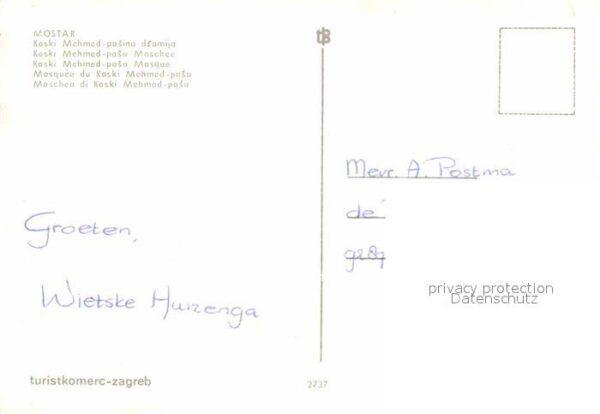 MOSTAR
Koski Mehmed-pašina džamija
Koski Mehmed-paša Moschee
Koski Mehmed-paša Mosque
Mosquée du Koski Mehmed-paša
Moschea di Koski Mehmed-paša
Groeten,
Wietske Huizenga
turistkomerc-zagreb
2737
Mevr. A. Postma
dé
privacy protection
Datenschutz